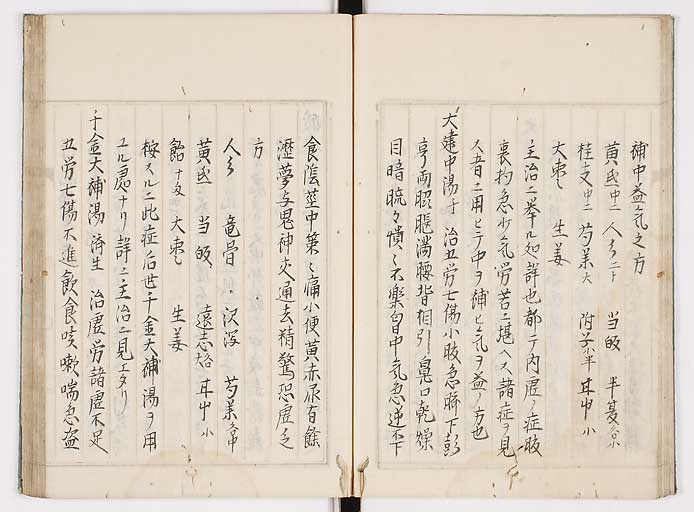 補中益気之方
黄芪中 人参 当皈 半夏
桂支中 芍薬大 附子 甘中 小
大棗 生姜
主治ニ挙ル処詳也都テ内虚ノ症腹
裏拘急少気労苦ニ堪ヘス諸症ヲ見
ス者ニ用ヒテ中ヲ補ヒ気ヲ益ノ方也
大建中湯千 治五労七傷小腹急臍下彭
亨両脇脹満腰背相引鼻口乾燥
目暗𥆨々憒々不楽胸中気急逆不下
食陰茎中策々痛小便黄赤尿有餘
瀝夢与鬼神交通去精驚恐虚乏
方
人参 竜骨 沢瀉 芍薬
黄芪 当皈 遠志 甘中 小
飴 大棗 生姜
按スルニ此症后世千金大補湯ヲ用
ユル処ナリ詳ニ主治ニ見エタリ
千金大補湯済生 治虚労諸虚不足
五労七傷不進飲食咳嗽喘急盗